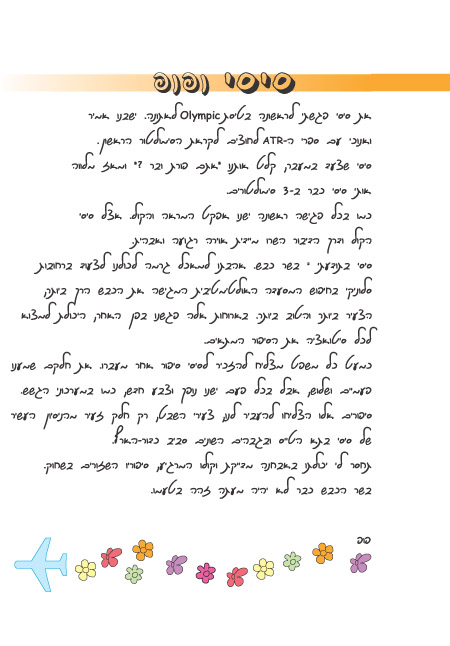 סיסי ופופ
את סיסי פגשתי לראשונה בטיסת Olympic לאתונה. ישבנו אמיר
ואנוכי עם ספרי ה-ATR לחוצים לקראת הסימולטור הראשון.
סיסי שצעד במעבר, קלט אותנו "אתם פורת ובר ?" ומאז מלווה
אותי סיסי כבר ב-3 סימולטורים.
כמו בכל פגישה ראשונה ישנו אפקט המראה והקול. אצל סיסי
הקול ודרך הדיבור השרו מיידית אוירה רגועה ואבהית.
סיסי בתודעתי = בשר כבש. אהבתו למאכל גרמה לכולנו לצעוד ברחובות
סלוניקי בחיפוש המסעדה האולטימטיבית המגישה את הכבש הרך ביותר,
הצעיר ביותר והטוב ביותר. בארוחות אלה פגשנו בפן האחר, היכולת למצוא
לכל סיטואציה את הסיפור המתאים.
כמעט כל משפט מצליח להזכיר לסיסי סיפור אחר מעברו. את חלקם שמענו
פעמיים ושלוש, אבל בכל פעם ישנו נופך וצבע חדש, כמו במערכוני הגשש.
סיפורים אלו הצליחו להעביר לנו, צעירי השבט, רק חלק זעיר מהנסיון העשיר
של סיסי בתא הטיס ובגבהים השונים סביב כדור-הארץ.
תחסר לי יכולתו באבחנה מדייקת וקולו המרגיע, סיפוריו השזורים בשחוק.
בשר הכבש כבר לא יהיה מעתה זהה בטעמו.
פופ